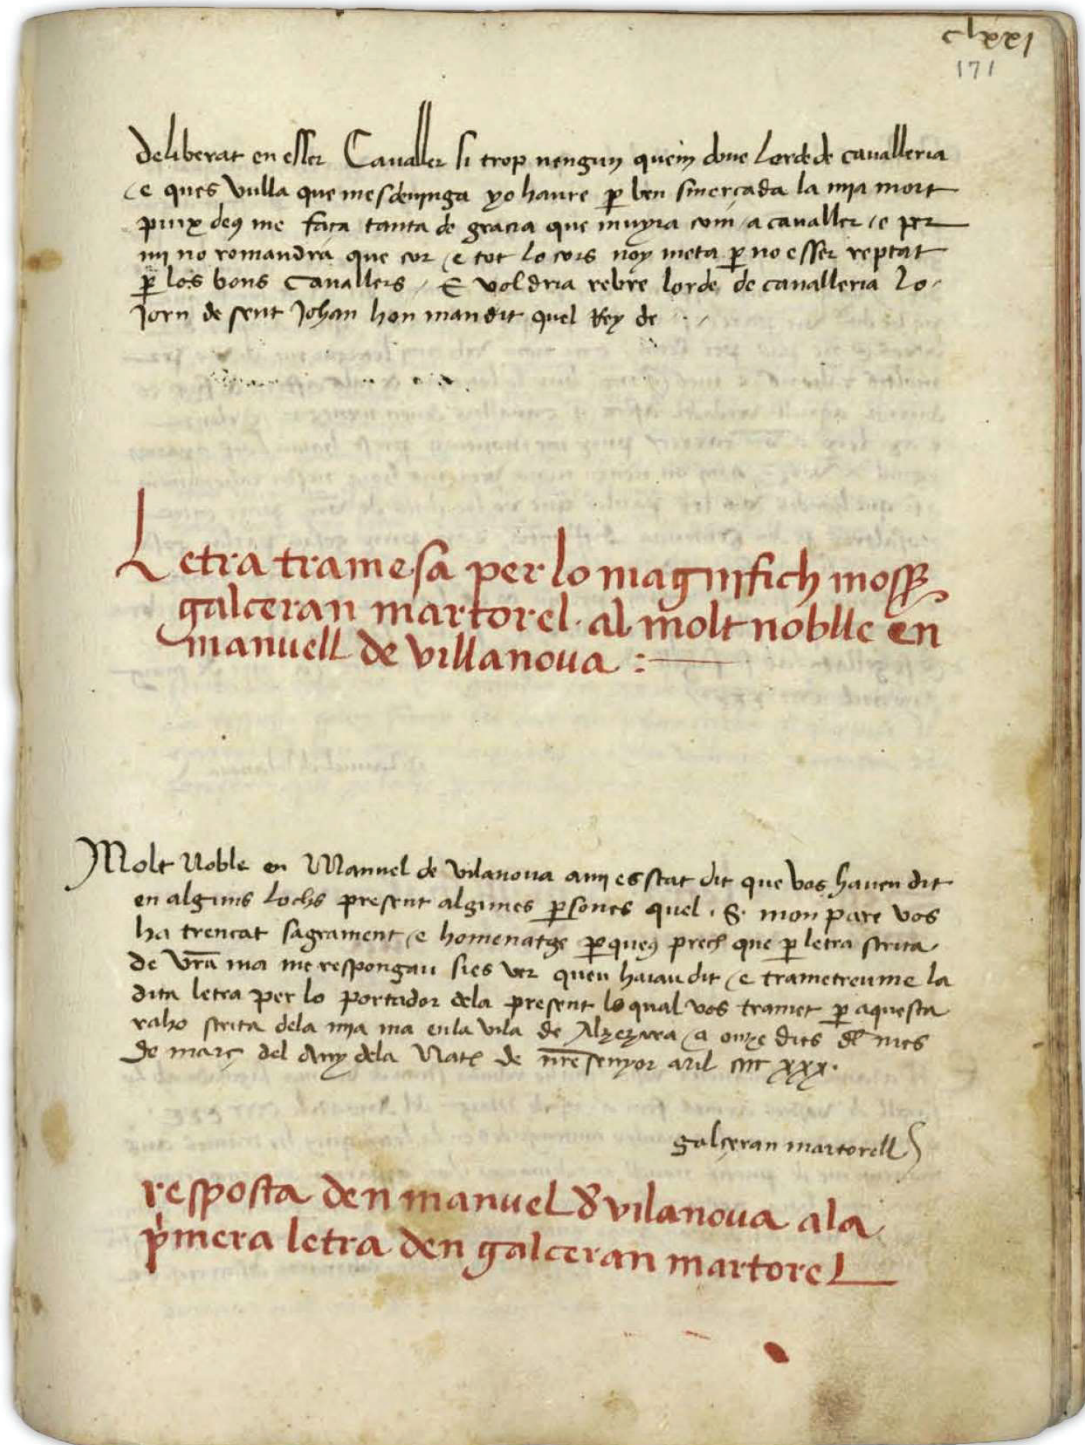 clxxi
171
deliberat en esser Cavaller si trop nenguy queiy done lorde de cavalleria
e ques vulla que mesdeuinga yo haure p ben smerçada la mia mort
puix deus me faça tanta de gracia que muyra com a cavaller e per
mi no romandra que cor e tot lo cors noy meta p no esser reptat
p los bons Cavallers E voldria rebre lorde de cavalleria lo
Jorn de sent Johan hon man dit quel Rey de
Letra tramesa per lo magnifich moss
galceran martorel al molt noblle en
manuell de villanova :
Molt Noble en Manuel de vilanova ami es stat dit que vos haveu dit
en alguns lochs present algunes psones quel .S. mon pare vos
ha trencat sagrament e homenatge pqueus prech que p letra scrita
de vra ma me respongau sies ver queu haiau dit e trametreume la
dita letra per lo portador dela present lo qual vos tramet p aquesta
raho scrita dela mia ma enla vila de Algezira a onze dies del mes
de març del Any dela Nat de nre senyor Mil cccc xxx.
galçeran martorell
resposta den manuel d vilanova ala
pmera letra den galceran martorel